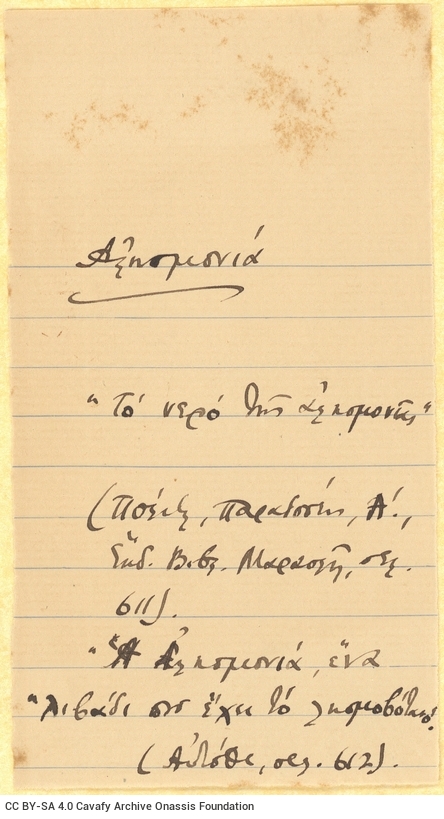 Ἀλησμονιά
"Τό νερό τῆς ἀλησμονῆς"
(Πολίτη, Παραδόσεις, Α΄.,
Ἔκδ. Βιβλ. Μαρασλῆ, σελ.
611).
"Ἡ Ἀλησμονιά, ἕνα
"λιβάδι που ἔχει τό λησμοβότανο.
(Αὐτόθι, σελ. 612).
CC BY-SA 4.0 Cavafy Archive Onassis Foundation